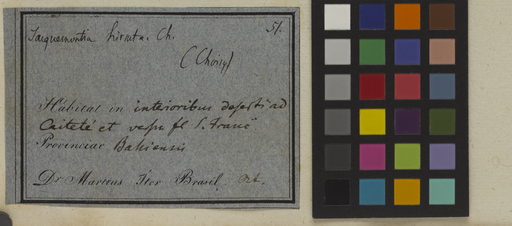 51.
Jacquemontia hirsuta. Ch.
(Choisy)
Habitat in interioribus deserti ad
Caiteté et versu fl. S. Franc
Provinciae Bahiensis
Dr Martius Iter Brasil. Oct.